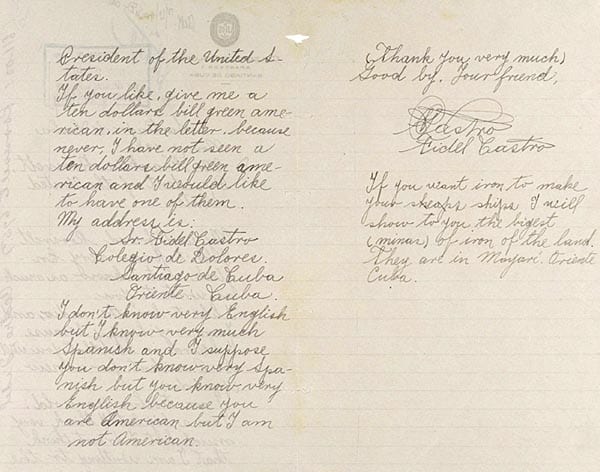 President of the United S-
tates.
If you like, give me a
ten dollars bill green ame-
rican, in the letter, because
never, I have not seen a
ten dollars bill green ame-
rican and I would like
to have one of them.
My address is:
Sr. Fidel Castro
Colegio de Dolores.
Santiago de Cuba
Oriente. Cuba.
I don't know very English
but I know very much
Spanish and I suppose
you don't know very Spa-
nish but you know very
English because you
are American but I am
not American.
(Thank you very much)
Good by. Your friend,
Castro
Fidel Castro
If you want iron to make
your sheaps ships I will
show to you the bigest
(minas) of iron of the land.
They are in Mayari. Oriente
Cuba.